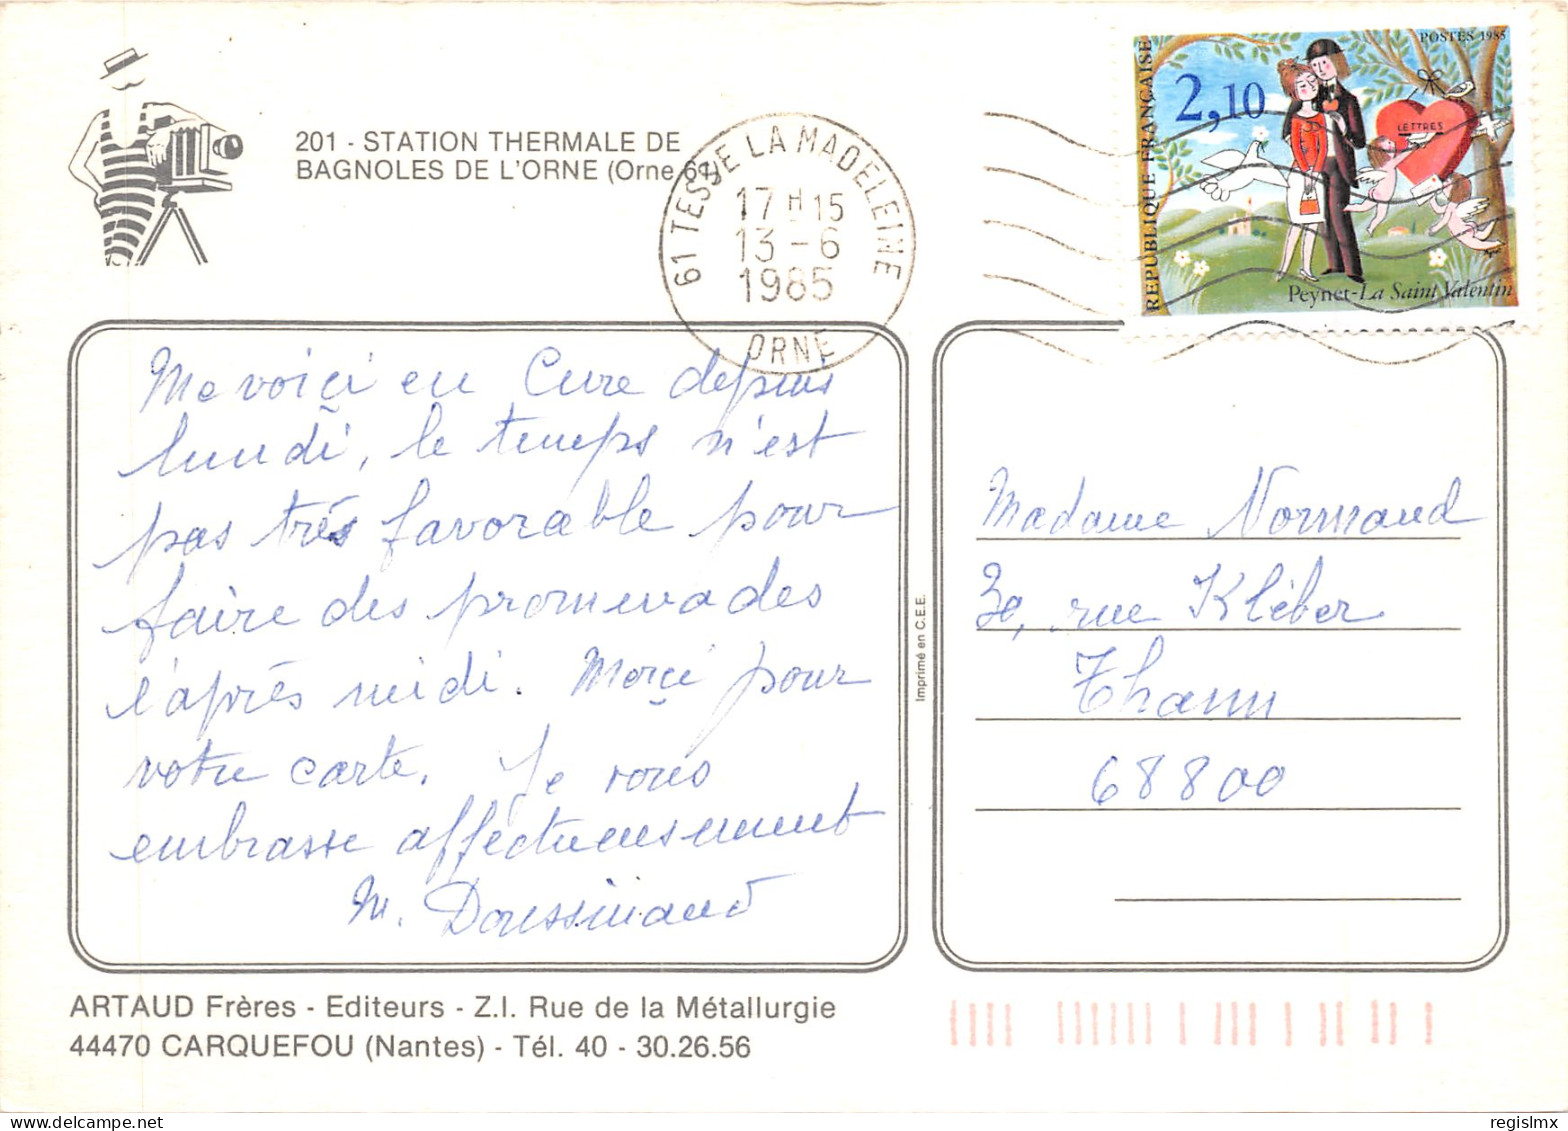 201 - STATION THERMALE DE
BAGNOLES DE L'ORNE (Orne 61)
61 TESSE LA MADELEINE
17 H 15
13 - 6
1985
ORNE
RÉPUBLIQUE FRANÇAISE
POSTES 1985
2,10
LETTRES
Peynet - La Saint Valentin
Me voici en Cure depuis
lundi, le temps n'est
pas très favorable pour
faire des promenades
l'après midi. Merçi pour
votre carte. Je vous
embrasse affectueusement
M. Doussinaud
Imprimé en C.E.E.
Madame Normand
rue Kléber
Thann
68800
ARTAUD Frères - Editeurs - Z.I. Rue de la Métallurgie
44470 CARQUEFOU (Nantes) - Tél. 40 - 30.26.56
regislmx